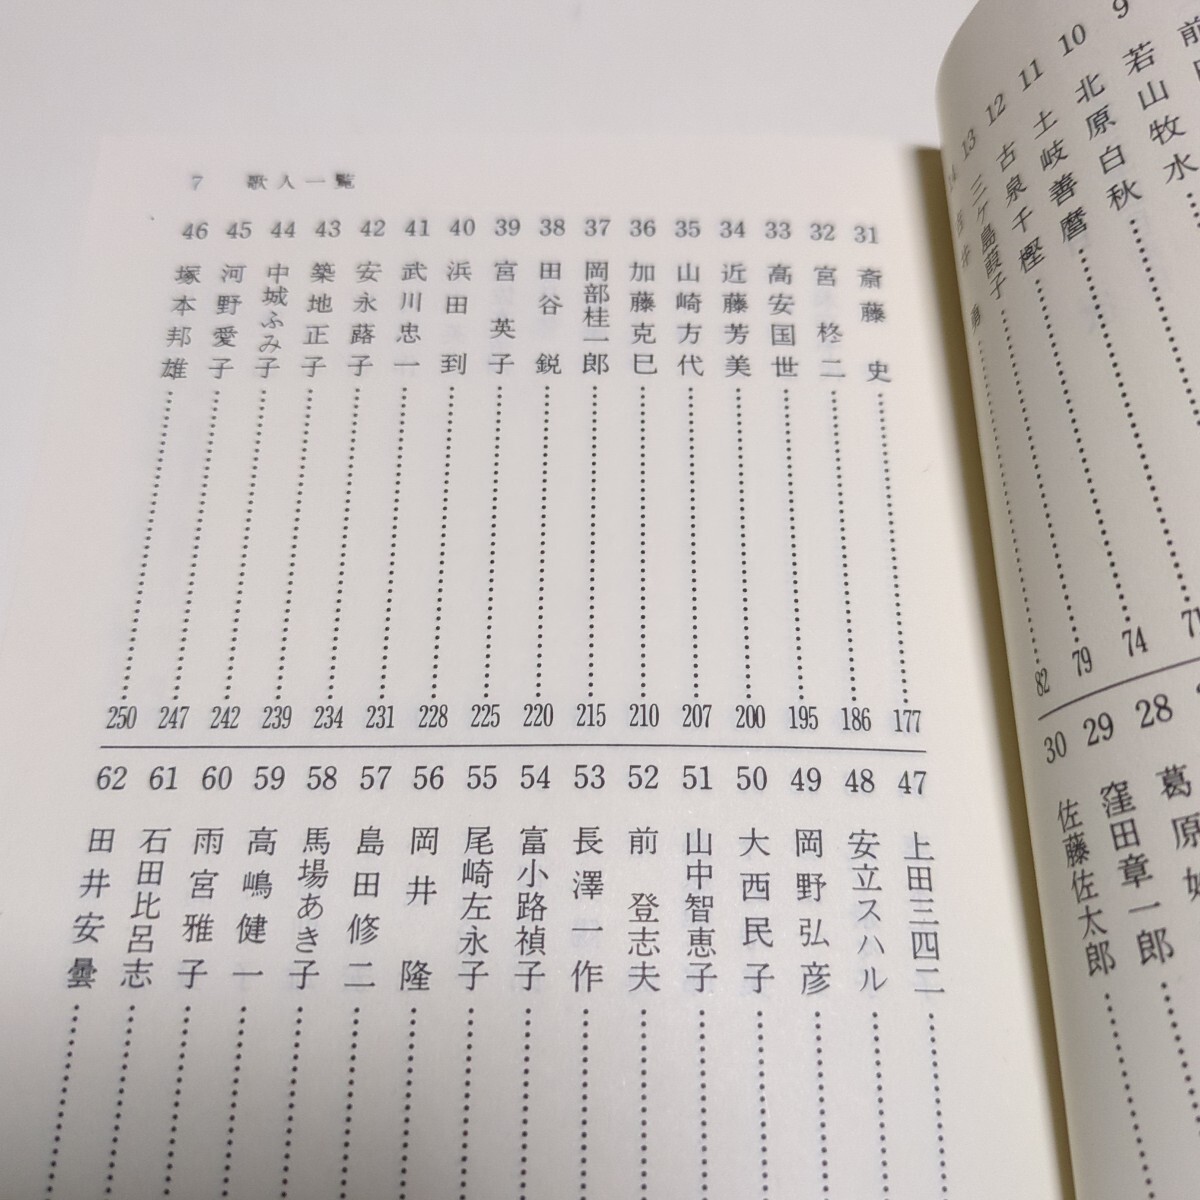 9
若山牧水……71
10
北原白秋……74
11
土岐善麿……79
12
古泉千樫……82
13
三ケ島葭子
28
葛原妙
29
窪田章一郎
30
佐藤佐太郎
7 歌人一覧
31 斎藤史……177
32 宮柊二……186
33 高安国世……195
34 近藤芳美……200
35 山崎方代……207
36 加藤克巳……210
37 岡部桂一郎……215
38 田谷鋭……220
39 宮英子……225
40 浜田到……228
41 武川忠一……231
42 安永蕗子……234
43 築地正子……239
44 中城ふみ子……242
45 河野愛子……247
46 塚本邦雄……250
47 上田三四二……
48 安立スハル……
49 岡野弘彦……
50 大西民子……
51 山中智恵子……
52 前登志夫……
53 長澤一作……
54 富小路禎子……
55 尾崎左永子……
56 岡井隆……
57 島田修二……
58 馬場あき子……
59 高嶋健一……
60 雨宮雅子……
61 石田比呂志……
62 田井安曇……